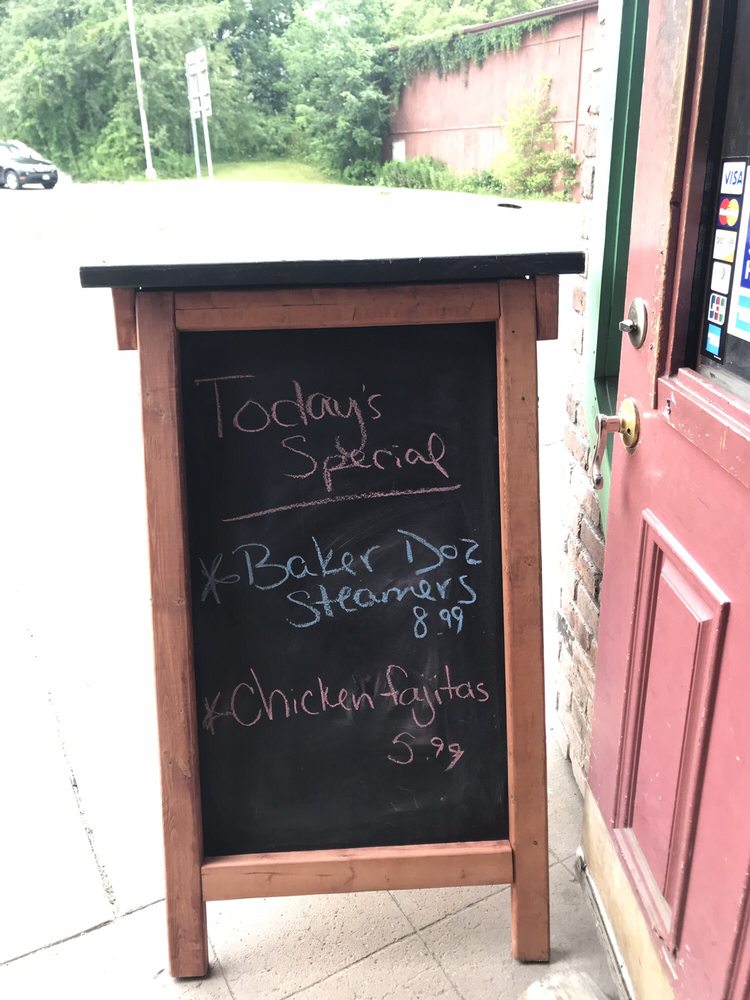 Today's
Special
* Baker Doz
Steamers
8.99
* Chicken fajitas
5.99
VISA